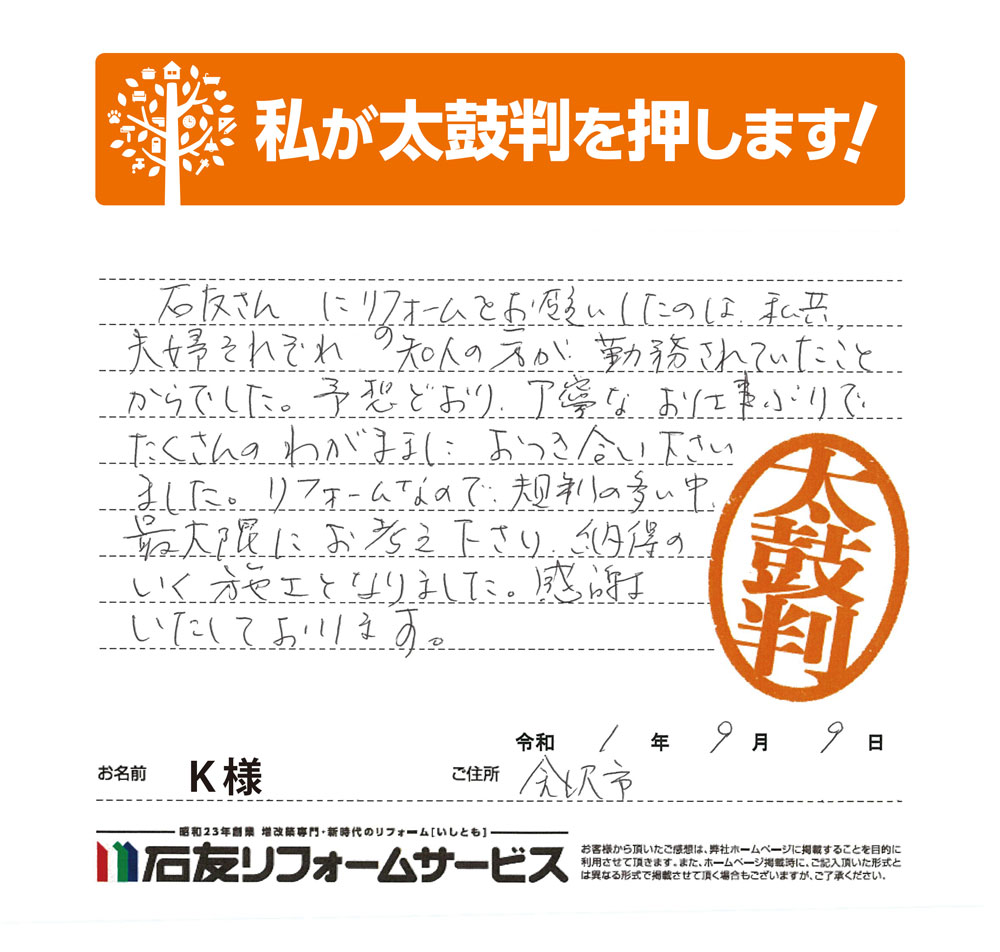 私が太鼓判を押します!
石友さん にリフォームをお願いしたのは、私共、
夫婦それぞれの知人の方が、勤務されていたこと
からでした。予想どおり、丁寧なお仕事ぶりで、
たくさんのわがままに おつき合い下さい
ました。リフォームなので、規制の多い中、
最大限に お考え下さり、納得の
いく施工となりました。感謝
いたしております。
太鼓判
令和 1 年 9 月 9 日
お名前 K様 ご住所 金沢市
昭和23年創業 増改築専門・新時代のリフォーム[いしとも]
石友リフォームサービス
お客様から頂いたご感想は、弊社ホームページに掲載することを目的に
利用させて頂きます。また、ホームページ掲載時に、ご記入頂いた形式と
は異なる形式で掲載させて頂く場合もございますが、ご了承ください。